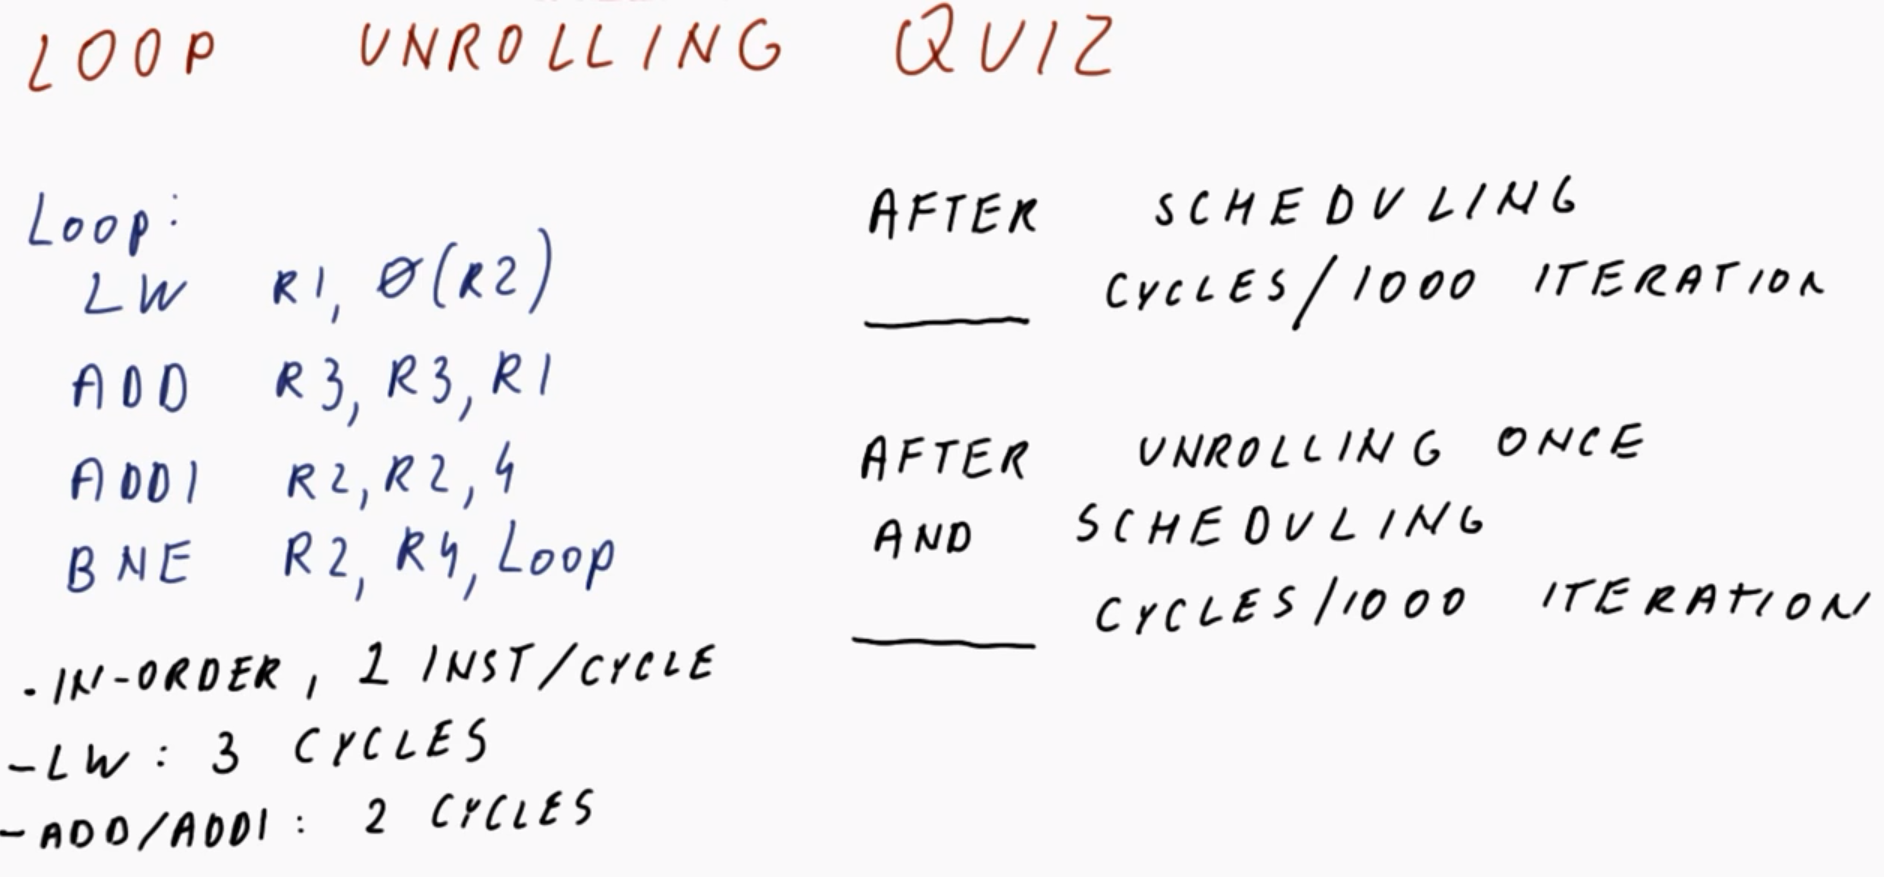 LOOP UNROLLING QUIZ
Loop:
LW R1, 0(R2)
ADD R3, R3, R1
ADDI R2, R2, 4
BNE R2, R4, Loop
- IN-ORDER, 1 INST/CYCLE
- LW: 3 CYCLES
- ADD/ADDI: 2 CYCLES
AFTER SCHEDULING
____ CYCLES/1000 ITERATION
AFTER UNROLLING ONCE
AND SCHEDULING
____ CYCLES/1000 ITERATION